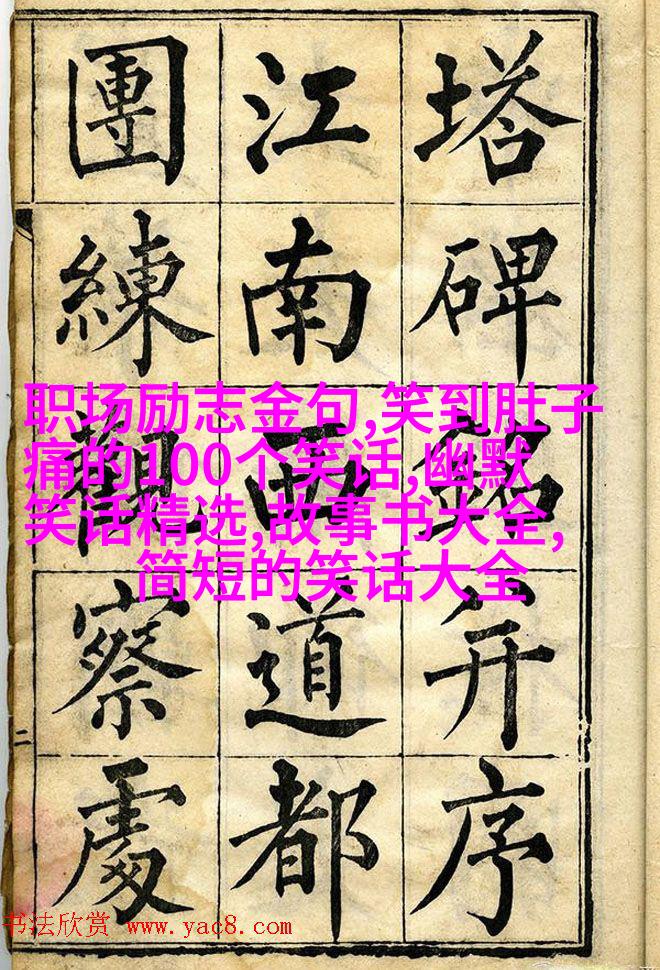 塔碑銘并序
江南西道都
團練觀察處
二
职场励志金句,笑到肚子
痛的100个笑话,幽默
笑话精选,故事书大全,
简短的笑话大全
书法欣赏 www.yac8.com